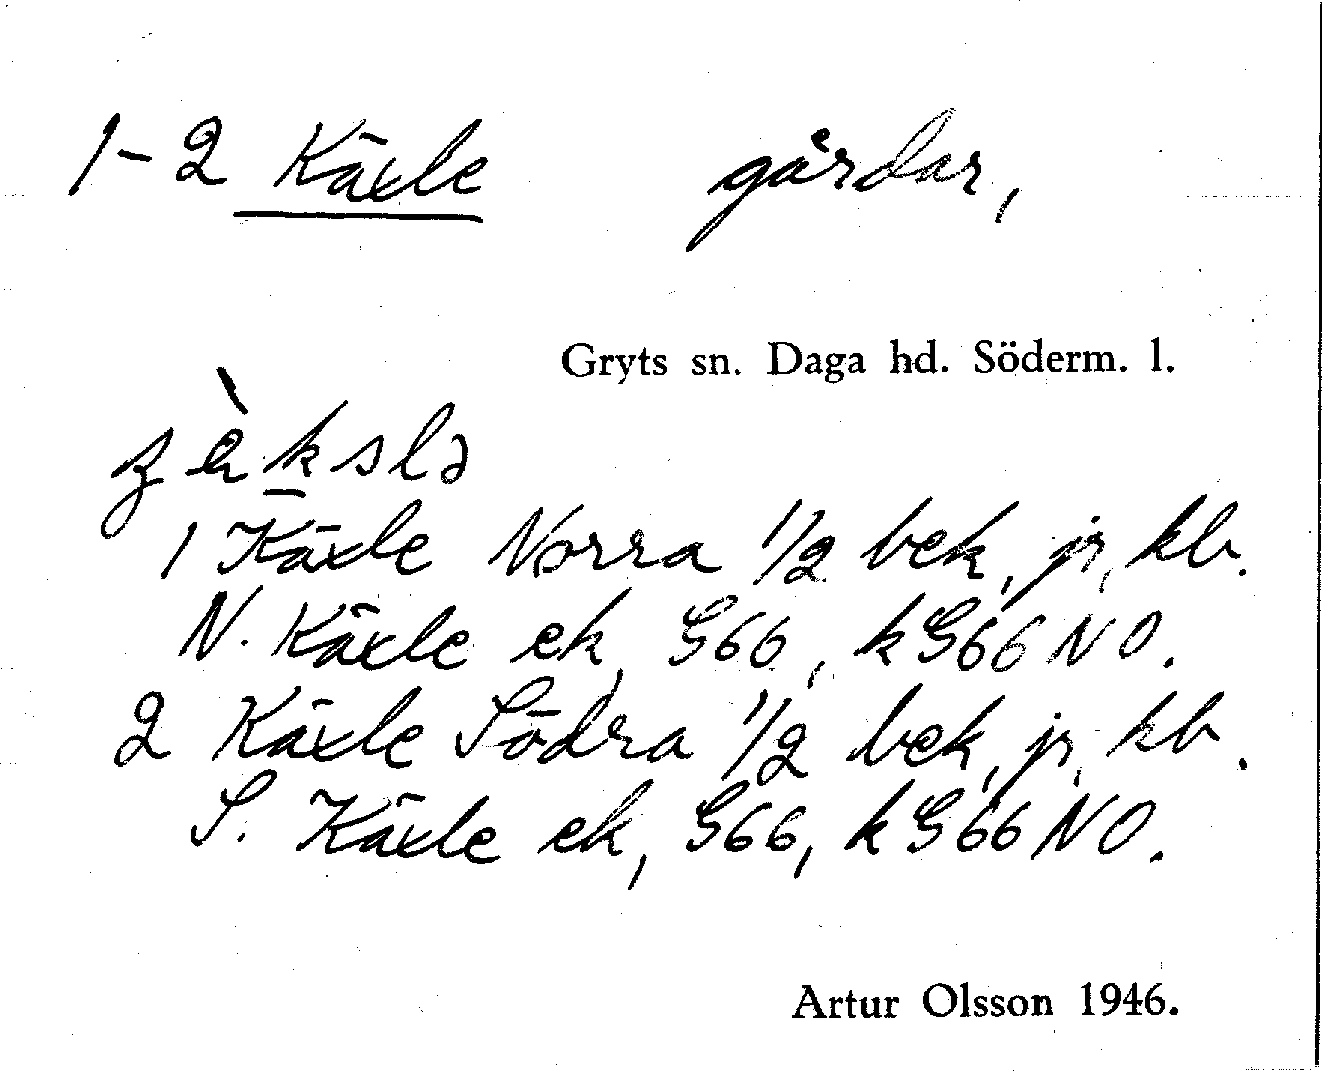 1-2 Käxle gårdar,
Gryts sn. Daga hd. Söderm. l.
1 Käxle Norra 1/2 bek, jr, kb.
N. Käxle ek, G66, kG66NO.
2 Käxle Södra 1/2 bek, jr, kb.
S. Käxle ek, G66, kG66NO.
Artur Olsson 1946.